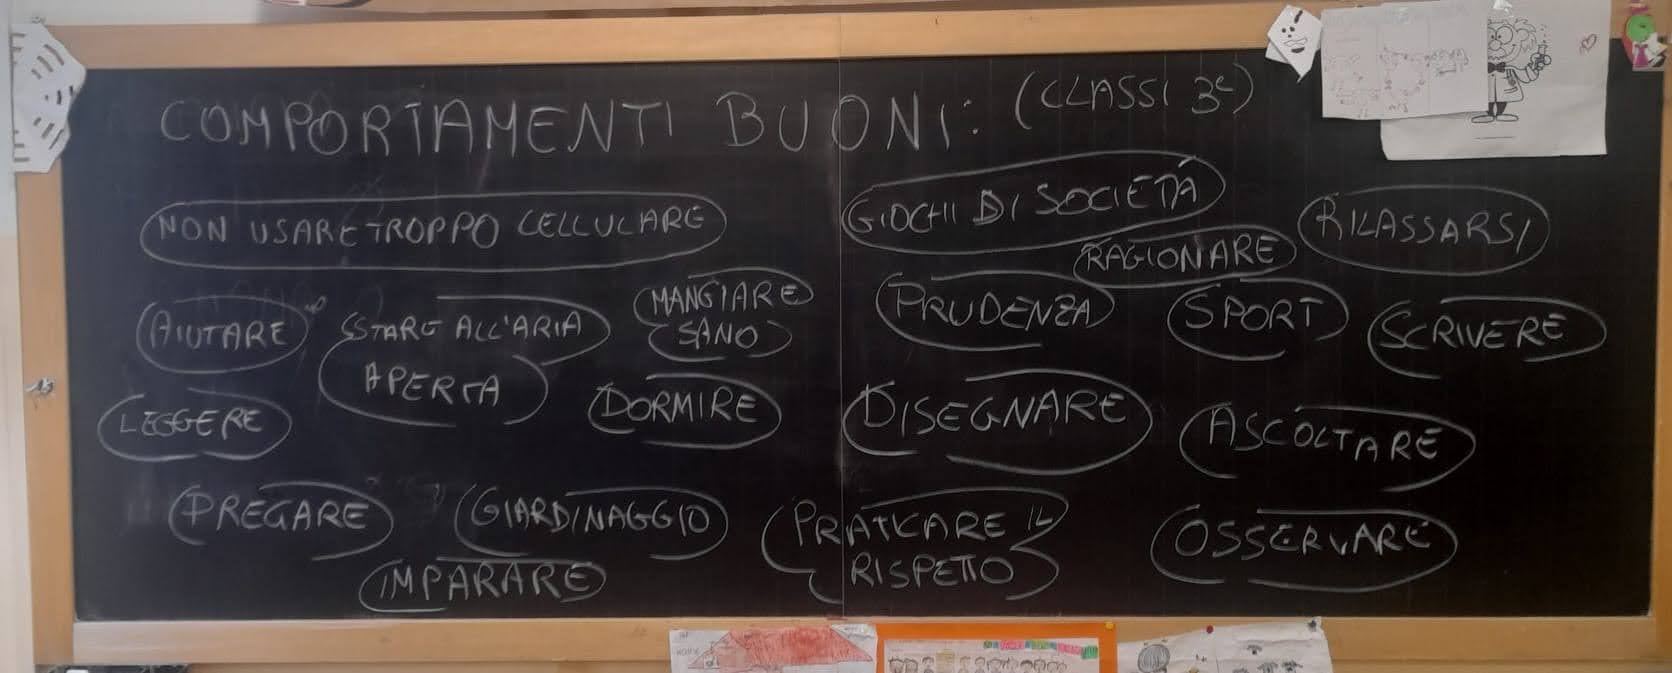 COMPORTAMENTI BUONI: (CLASSI 3e)
NON USARE TROPPO CELLULARE
GIOCHI DI SOCIETÀ
RAGIONARE
RILASSARSI
AIUTARE
STARE ALL'ARIA
APERTA
MANGIARE
SANO
PRUDENZA
SPORT
SCRIVERE
LEGGERE
DORMIRE
DISEGNARE
ASCOLTARE
PREGARE
GIARDINAGGIO
IMPARARE
PRATICARE IL
RISPETTO
OSSERVARE